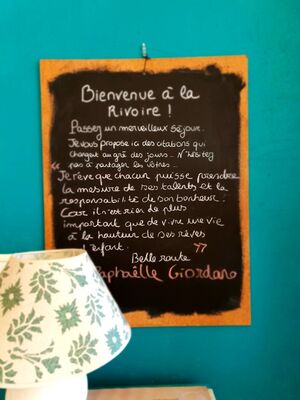 Bienvenue à la
Rivoire !
Passez un merveilleux séjour.
Je vous propose ici des citations qui
changent au gré des jours... N'hésitez
pas à partager les vôtres...
" Je rêve que chacun puisse prendre
la mesure de ses talents et la
responsabilité de son bonheur :
Car il n'est rien de plus
important que de vivre une vie
à la hauteur de ses rêves
d'enfant. "
Belle route
Raphaëlle Giordano